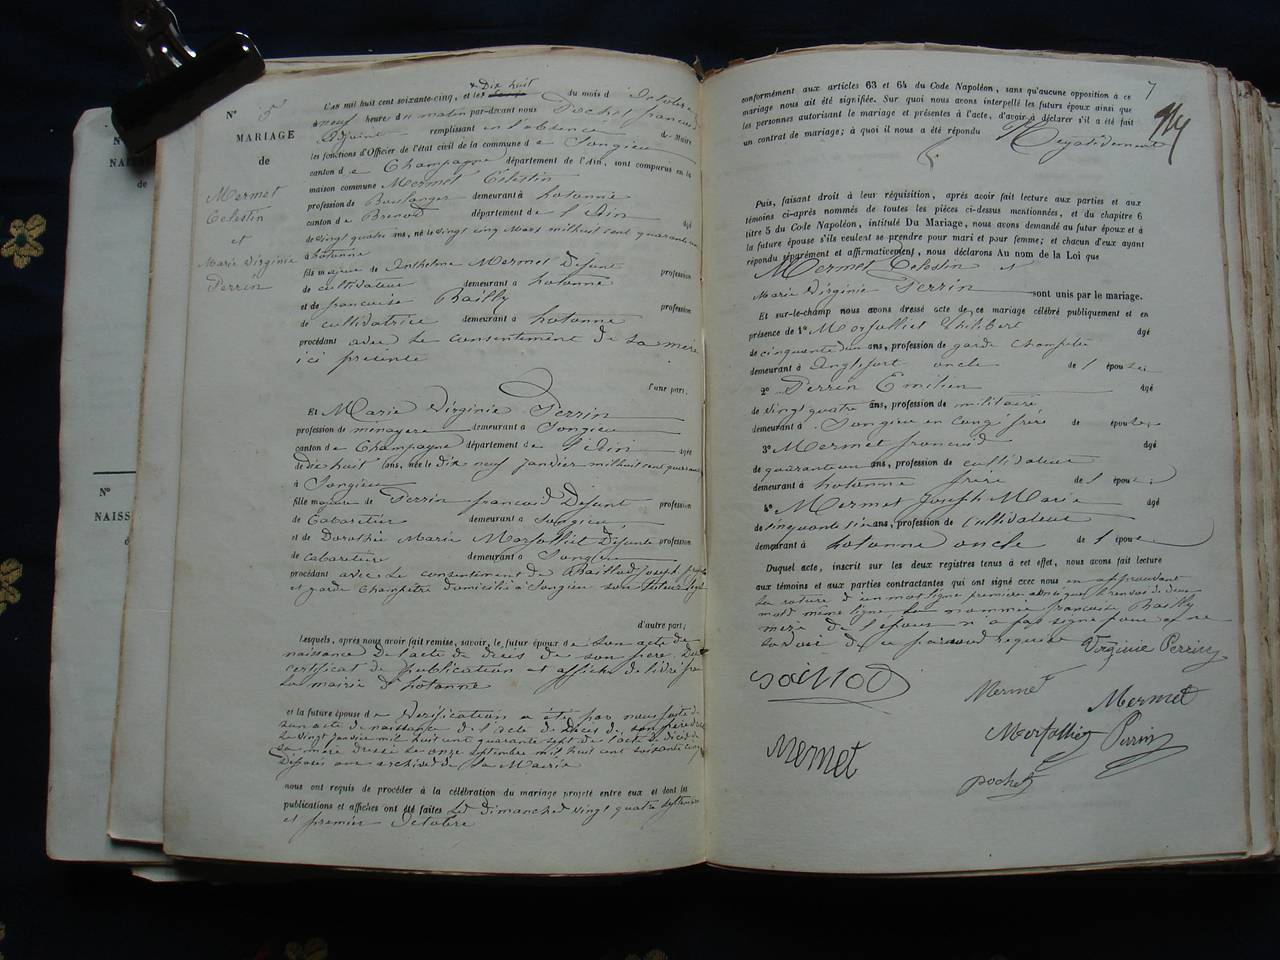 N° 5
MARIAGE
de
Mermet
Celestin
et
Marie Virginie
Perrin
× Dix huit
L'an mil huit cent soixante-cinq, et le du mois d'Octobre
à neuf heure du matin par-devant nous Pochet françois
Adjoint remplissant en l'absence du Maire
les fonctions d'Officier de l'état civil de la commune de Songieu
canton de Champagne département de l'Ain, sont comparus en la
maison commune Mermet Célestin
profession de Boulanger demeurant à hotonne
canton de Brenod département de l'Ain âgé
de vingt quatre ans, né le vingt cinq Mars mil huit cent quarante un
à hotonne
fils majeur de Anthelme Mermet Defunt profession
de cultivateur demeurant à hotonne
et de francoise Bailly profession
de cultivatrice demeurant à hotonne
procédant avec le consentement de sa mere
ici presente
d'une part.
Et Marie Virginie Perrin
profession de ménagere demeurant à Songieu
canton de Champagne département de l'Ain âgée
de dix huit ans, née le Dix neuf janvier mil huit cent quarante
à Songieu
fille majeure de Perrin francois Défunt profession
de Cabaretier demeurant à Songieu
et de Dorothée Marie Morfolliet Défunte profession
de cabaretiere demeurant à Songieu
procédant avec le consentement de Baillod Joseph
et garde Champêtre domicilié à Songieu son tuteur
d'autre part;
Lesquels, après nous avoir fait remise, savoir, le futur époux de son acte de
naissance de l'acte de deces de son pere Du
certificat de publication et affiche delivré par
la mairie d'hotonne
et la future épouse de Verification a été par nous faite de
son acte de naissance de l'acte de Déces de son pere
le vingt Janvier mil huit cent quarante sept de l'acte de décès de
sa mère dressé le onze septembre mil huit cent soixante cinq
Déposés aux archives de la Mairie
nous ont requis de procéder à la célébration du mariage projeté entre eux et dont les
publications et affiches ont été faites les dimanches vingt quatre septembre
et premier Octobre
7
conformément aux articles 63 et 64 du Code Napoléon, sans qu'aucune opposition à ce
mariage nous ait été signifiée. Sur quoi nous avons interpellé les futurs époux ainsi que
les personnes autorisant le mariage et présentes à l'acte, d'avoir à déclarer s'il a été fait
un contrat de mariage; à quoi il nous a été répondu Négativement
Puis, faisant droit à leur réquisition, après avoir fait lecture aux parties et aux
témoins ci-après nommés de toutes les pièces ci-dessus mentionnées, et du chapitre 6
titre 5 du Code Napoléon, intitulé Du Mariage, nous avons demandé au futur époux et à
la future épouse s'ils veulent se prendre pour mari et pour femme; et chacun d'eux ayant
répondu séparément et affirmativement, nous déclarons Au nom de la Loi que
Mermet Celestin et
Marie Virginie Perrin sont unis par le mariage.
Et sur-le-champ nous avons dressé acte de ce mariage célébré publiquement et en
présence de 1° Morfolliet Philibert âgé
de cinquante un ans, profession de garde Champêtre
demeurant à Anglefort oncle de l'épouse
2° Perrin Emilien âgé
de vingt quatre ans, profession de militaire,
demeurant à Songieu en congé frère de épouse
3° Mermet francois âgé
de quarante un ans, profession de cultivateur
demeurant à hotonne frère de l'époux
4° Mermet Joseph Marie âgé
de cinquante six ans, profession de Cultivateur
demeurant à hotonne oncle de l'époux
Duquel acte, inscrit sur les deux registres tenus à cet effet, nous avons fait lecture
aux témoins et aux parties contractantes qui ont signé avec nous en approuvant
la rature d'un mot ligne premiere ainsi que le renvoi de deux
mots même ligne, la nommée francoise Bailly
mere de l'époux n'a pas signé pour ne
savoir de ce faire requise Virginie Perrin
Baillod Mermet Mermet
Morfolliet Perrin
Mermet
pochet
N°
NAISS